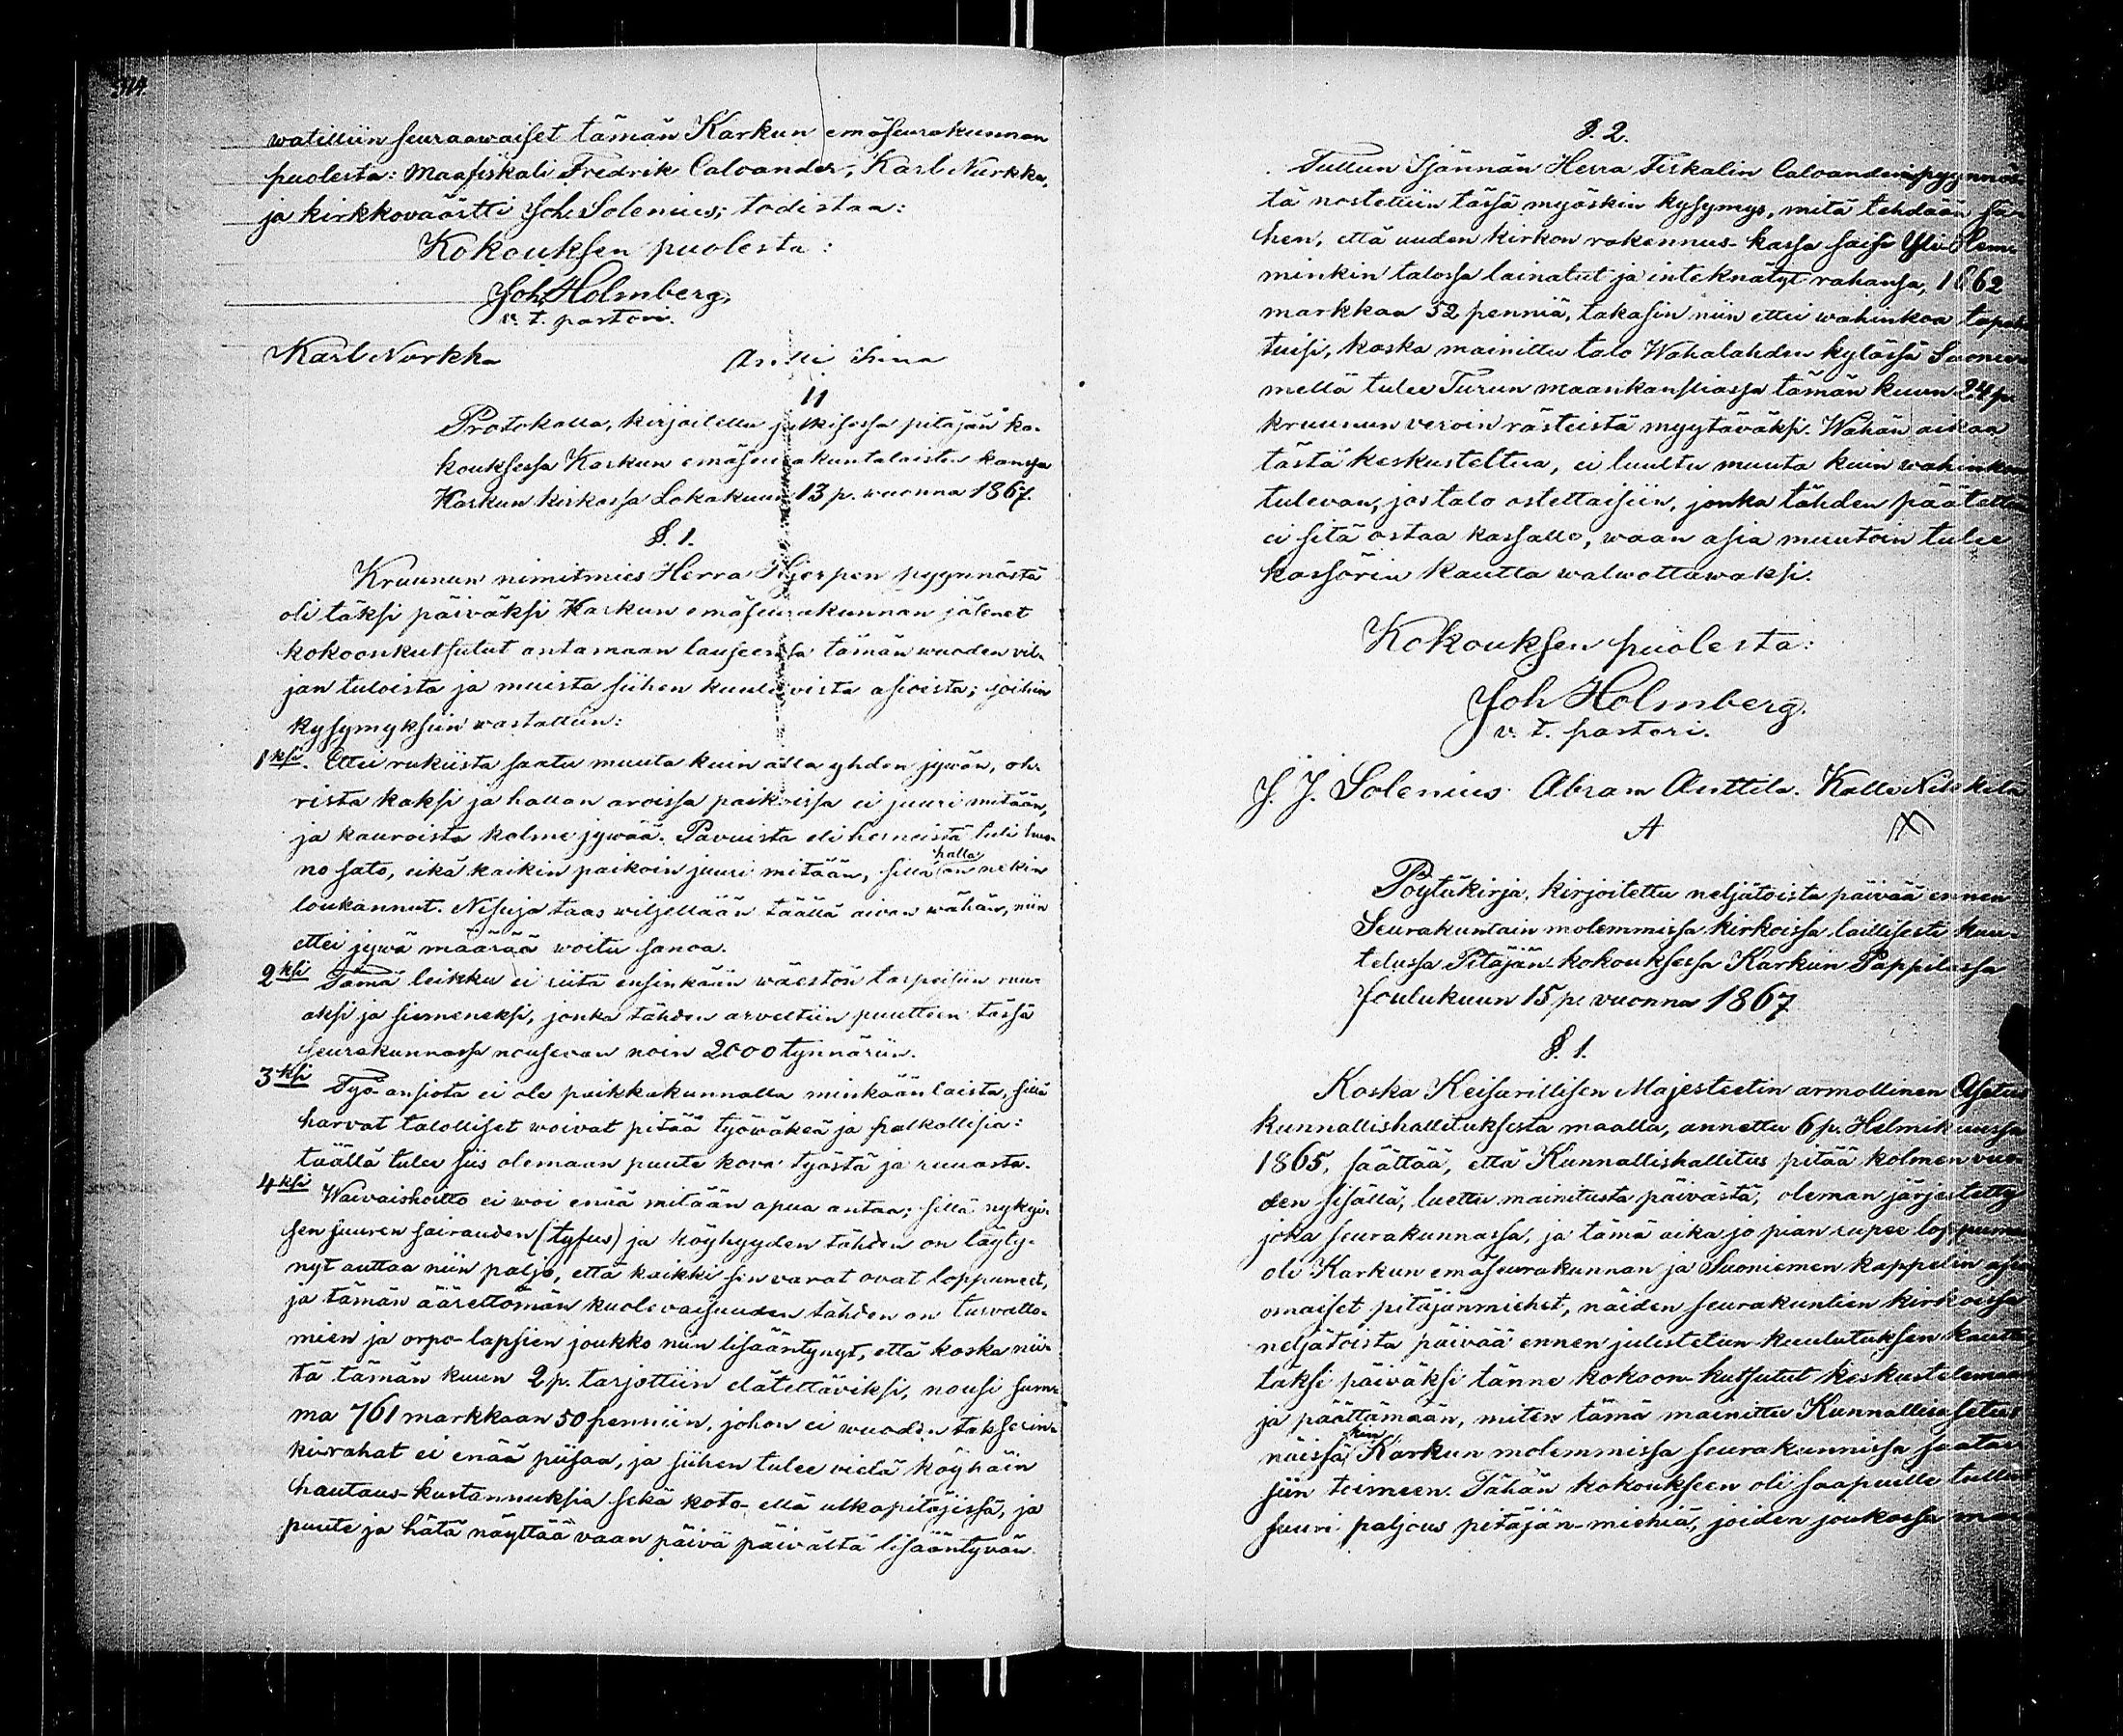 314
watilliin seuraawaiset tämän Karkun emäseurakunnan
puolesta: Maafiskali Fredrik Calvander, Karl Nurkka,
ja kirkkoväärtti Joh. Solenius; todistaa:
Kokouksen puolesta:
Joh. Holmberg,
v. t. pastori.
Karl Norkka
Protokolla, kirjoitettu julkisessa pitäjän ko-
kouksessa Karkun emäseurakuntalaisten kanssa
Karkun kirkossa Lokakuun 13 p. vuonna 1867.
§. 1.
Kruunun nimitmies Herra Hjerpen pyynnöstä
oli täksi päiväksi Karkun emäseurakunnan jäsenet
kokoonkutsutut antamaan lauseensa tämän wuoden vil-
jan tuloista ja muista siihen kuuluvista asioista; joihin
kysymyksiin wastattiin:
1ksi. Ettei rukiista saatu muuta kuin alla yhden jywän, oh-
rista kaksi ja hallan aroissa paikoissa ei juuri mitään,
ja kauroista kolme jywää. Pavuista eli herneistä tuli huo-
no sato, eikä kaikin paikoin juuri mitään, sillä halla on nekin
loukannut. Nisuja taas wiljellään täällä aivan wähän, niin
ettei jywä määrää woitu sanoa.
2ksi Tämä leikku ei riitä ensinkään wäestön tarpeisiin ruu-
aksi ja siemeneksi, jonka tähden arveltiin puutteen tässä
seurakunnassa nousevan noin 2000 tynnäriin.
3ksi Työ-ansiota ei ole paikkakunnalla minkäänlaista, sillä
harvat talolliset woivat pitää työwäkeä ja palkollisia:
täällä tulee siis olemaan puute kova työstä ja ruuasta.
4ksi Waivaishoitto ei woi enää mitään apua antaa; sillä nykyi-
sen suuren sairauden (tyfus) ja köyhyyden tähden on täyty-
nyt auttaa niin paljo, että kaikki sen varat ovat loppuneet,
ja tämän äärettömän kuolevaisuuden tähden on turvatto-
mien ja orpo-lapsien joukko niin lisääntynyt, että koska nii-
tä tämän kuun 2 p. tarjottiin elätettäviksi, nousi sum-
ma 761 markkaan 50 penniin, johon ei wuoden taksein-
ki-rahat ei enää piisaa, ja siihen tulee vielä köyhäin
hautaus-kustannuksia sekä koto- että ulkopitäjissä, ja
puute ja hätä näyttää vaan päivä päivältä lisääntyvän.
§. 2.
Tullun Isännän Herra Fiskalin Calvanderin pyynnös-
tä nostettiin tässä myöskin kysymys, mitä tehdään sii-
hen, että uuden kirkon rakennus-kassa saisi Yli-
minkin talossa lainatut ja inteknätyt rahansa, 1862
markkaa 52 penniä, takasin niin ettei wahinkoa tapah-
tuisi, koska mainittu talo Wahalahden kylässä Suonie-
mellä tulee Turun maankansliassa tämän kuun 24 p.
kruunun veroin rästeistä myytäväksi. Wähän aikaa
tästä keskusteltua, ei luultu muuta kuin wahinkoa
tulevan, jos talo ostettaisiin, jonka tähden päätettiin
ei sitä ostaa kassalle, waan asia muutoin tulee
kassörin kautta walwottawaksi.
Kokouksen puolesta:
Joh Holmberg.
v. t. pastori.
J. J. Solenius. Abram Anttila. Kalle
A
Pöytäkirja, kirjoitettu neljätoista päivää ennen
Seurakuntain molemmissa kirkoissa laillisesti kuu-
telussa Pitäjän-kokouksessa Karkun Pappilassa
Joulukuun 15 p. vuonna 1867
§. 1.
Koska Keisarillisen Majesteetin armollinen Asetus
kunnallishallituksesta maalla, annettu 6 p. Helmikuussa
1865, säättää, että Kunnallishallitus pitää kolmen vuo-
den sisällä, luettu mainitusta päivästä, oleman järjestetty
joka seurakunnassa, ja tämä aika jo pian rupee loppumaan
oli Karkun emäseurakunnan ja Suoniemen kappelin asian
omaiset pitäjänmiehet, näiden seurakuntien kirkoissa
neljätoista päivää ennen julistetun kuulutuksen kautta
täksi päiväksi tänne kokoon-kutsutut keskustelemaan
ja päättämään, miten tämä mainittu Kunnallisasetus
näissäkin Karkun molemmissa seurakunnissa saatai-
siin toimeen. Tähän kokoukseen oli saapuille tullut
suuri paljous pitäjän-miehiä, joiden joukossa